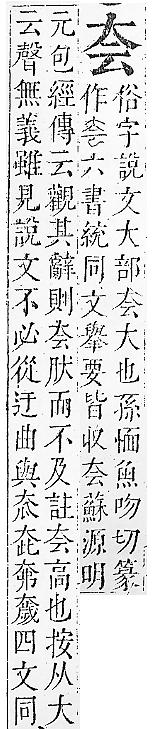 夽
俗字說文大部夽大也孫愐魚吻切篆
作六書統同文舉要皆收夽蘇源明
元包經傳云觀其辭則夽肰而不及註夽高也按从大
云聲無義雖見說文不必從迂曲與四文同